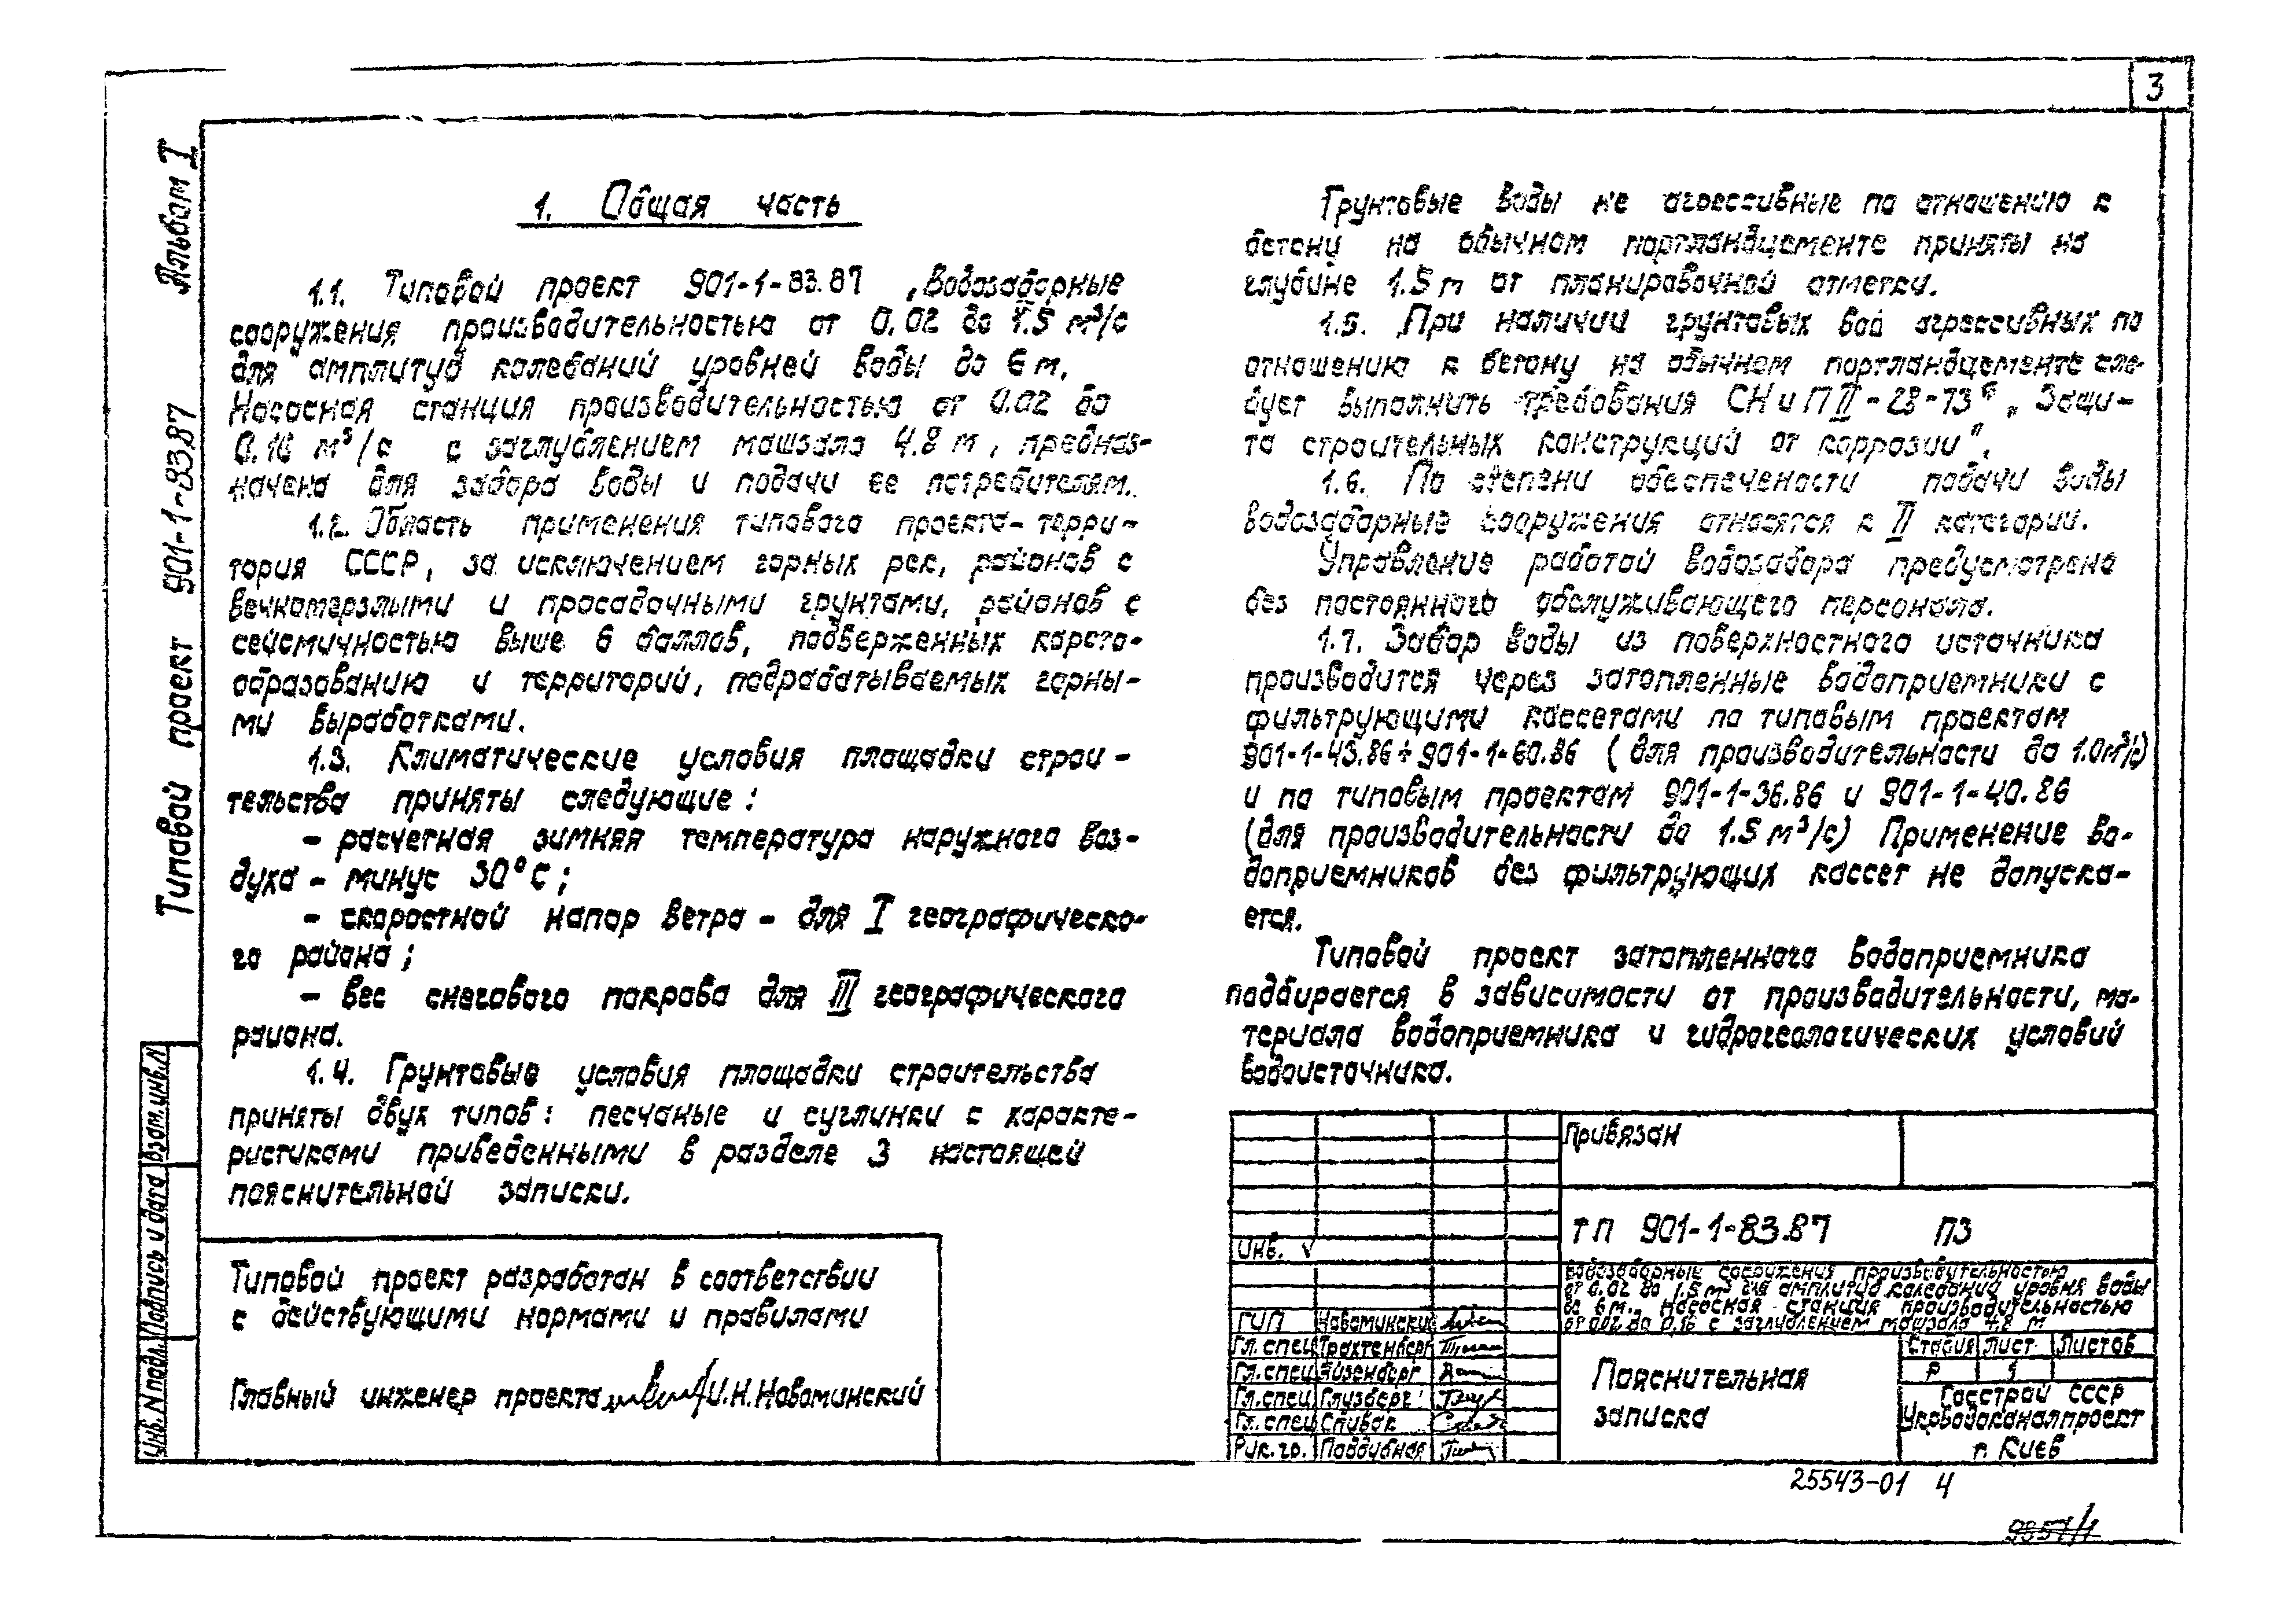 3
Альбом I
Типовой проект 901-1-83.87
1. Общая часть
1.1. Типовой проект 901-1-83.87 „Водозаборные
сооружения производительностью от 0.02 до 1.5 м³/с
для амплитуд колебаний уровней воды до 6 м.
Насосная станция производительностью от 0.02 до
0.16 м³/с с заглублением машзала 4.8 м, предназ-
начена для забора воды и подачи ее потребителям.
1.2. Область применения типового проекта- терри-
тория СССР, за исключением горных рек, районов с
вечномерзлыми и просадочными грунтами, районов с
сейсмичностью выше 6 баллов, подверженных карсто-
образованию и территорий, подрабатываемых горны-
ми выработками.
1.3. Климатические условия площадки строи-
тельства приняты следующие:
- расчетная зимняя температура наружного воз-
духа - минус 30°С;
- скоростной напор ветра - для I географическо-
го района;
- вес снегового покрова для III географического
района.
1.4. Грунтовые условия площадки строительства
приняты двух типов: песчаные и суглинки с характе-
ристиками приведенными в разделе 3 настоящей
пояснительной записки.
Типовой проект разработан в соответствии
с действующими нормами и правилами
Главный инженер проекта И.Н.Новоминский
Грунтовые воды не агрессивные по отношению к
бетону на обычном портландцементе приняты на
глубине 1.5 м от планировочной отметки.
1.5. При наличии грунтовых вод агрессивных по
отношению к бетону на обычном портландцементе сле-
дует выполнить требования СНиП II-28-73* „Защи-
та строительных конструкций от коррозии".
1.6. По степени обеспечености подачи воды
водозаборные сооружения относятся к II категории.
Управление работой водозабора предусмотрено
без постоянного обслуживающего персонала.
1.7. Забор воды из поверхностного источника
производится через затопленные водоприемники с
фильтрующими кассетами по типовым проектам
901-1-43.86÷901-1-60.86 (для производительности до 1.0м³/с)
и по типовым проектам 901-1-36.86 и 901-1-40.86
(для производительности до 1.5 м³/с) Применение во-
доприемников без фильтрующих кассет не допуска-
ется.
Типовой проект затопленного водоприемника
подбирается в зависимости от производительности, ма-
териала водоприемника и гидрогеологических условий
водоисточника.
Привязан
Инв. №
ТП 901-1-83.87 ПЗ
Водозаборные сооружения производительностью
от 0.02 до 1.5 м³ для амплитуд колебаний уровня воды
до 6 м. Насосная станция производительностью
от 0.02 до 0.16 с заглублением машзала 4.8 м
ГИП Новоминский
Гл. спец Трахтенберг
Гл. спец Айзенберг
Гл. спец Глузберг
Гл. спец Спивак
Рук. гр. Поддубная
Пояснительная
записка
Стадия Лист Листов
Р 1
Госстрой СССР
Укрводоканалпроект
г. Киев
Инв. N подл. Подпись и дата Взам. инв. N
25543-01 4
9857/1